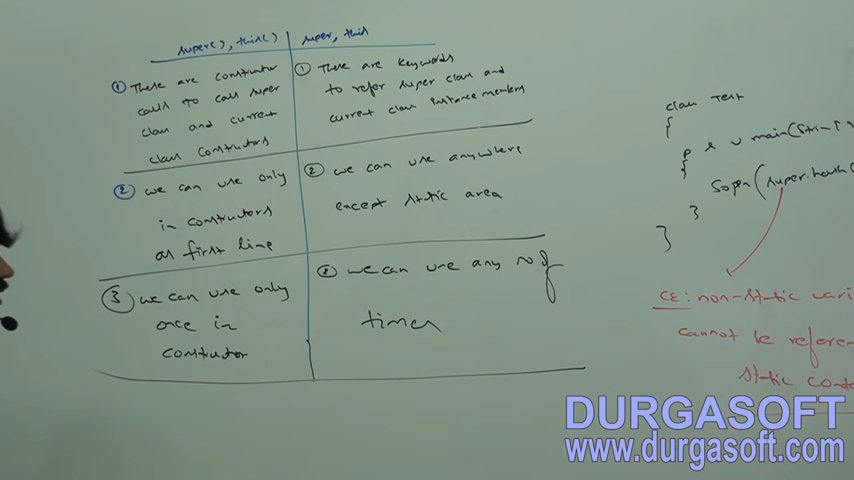 super(), this()
super, this
① These are constructor
calls to call super
class and current
class constructors
① These are keywords
to refer super class and
current class instance members
② we can use only
in constructors
as first line
② we can use anywhere
except static area
③ we can use only
once in
constructor
we can use any no of
times
class Test
{
p s v main(Stri
{
Sopln(super.hash
}
}
CE: non-static vari
cannot be referen
static cont
DURGASOFT
www.durgasoft.com